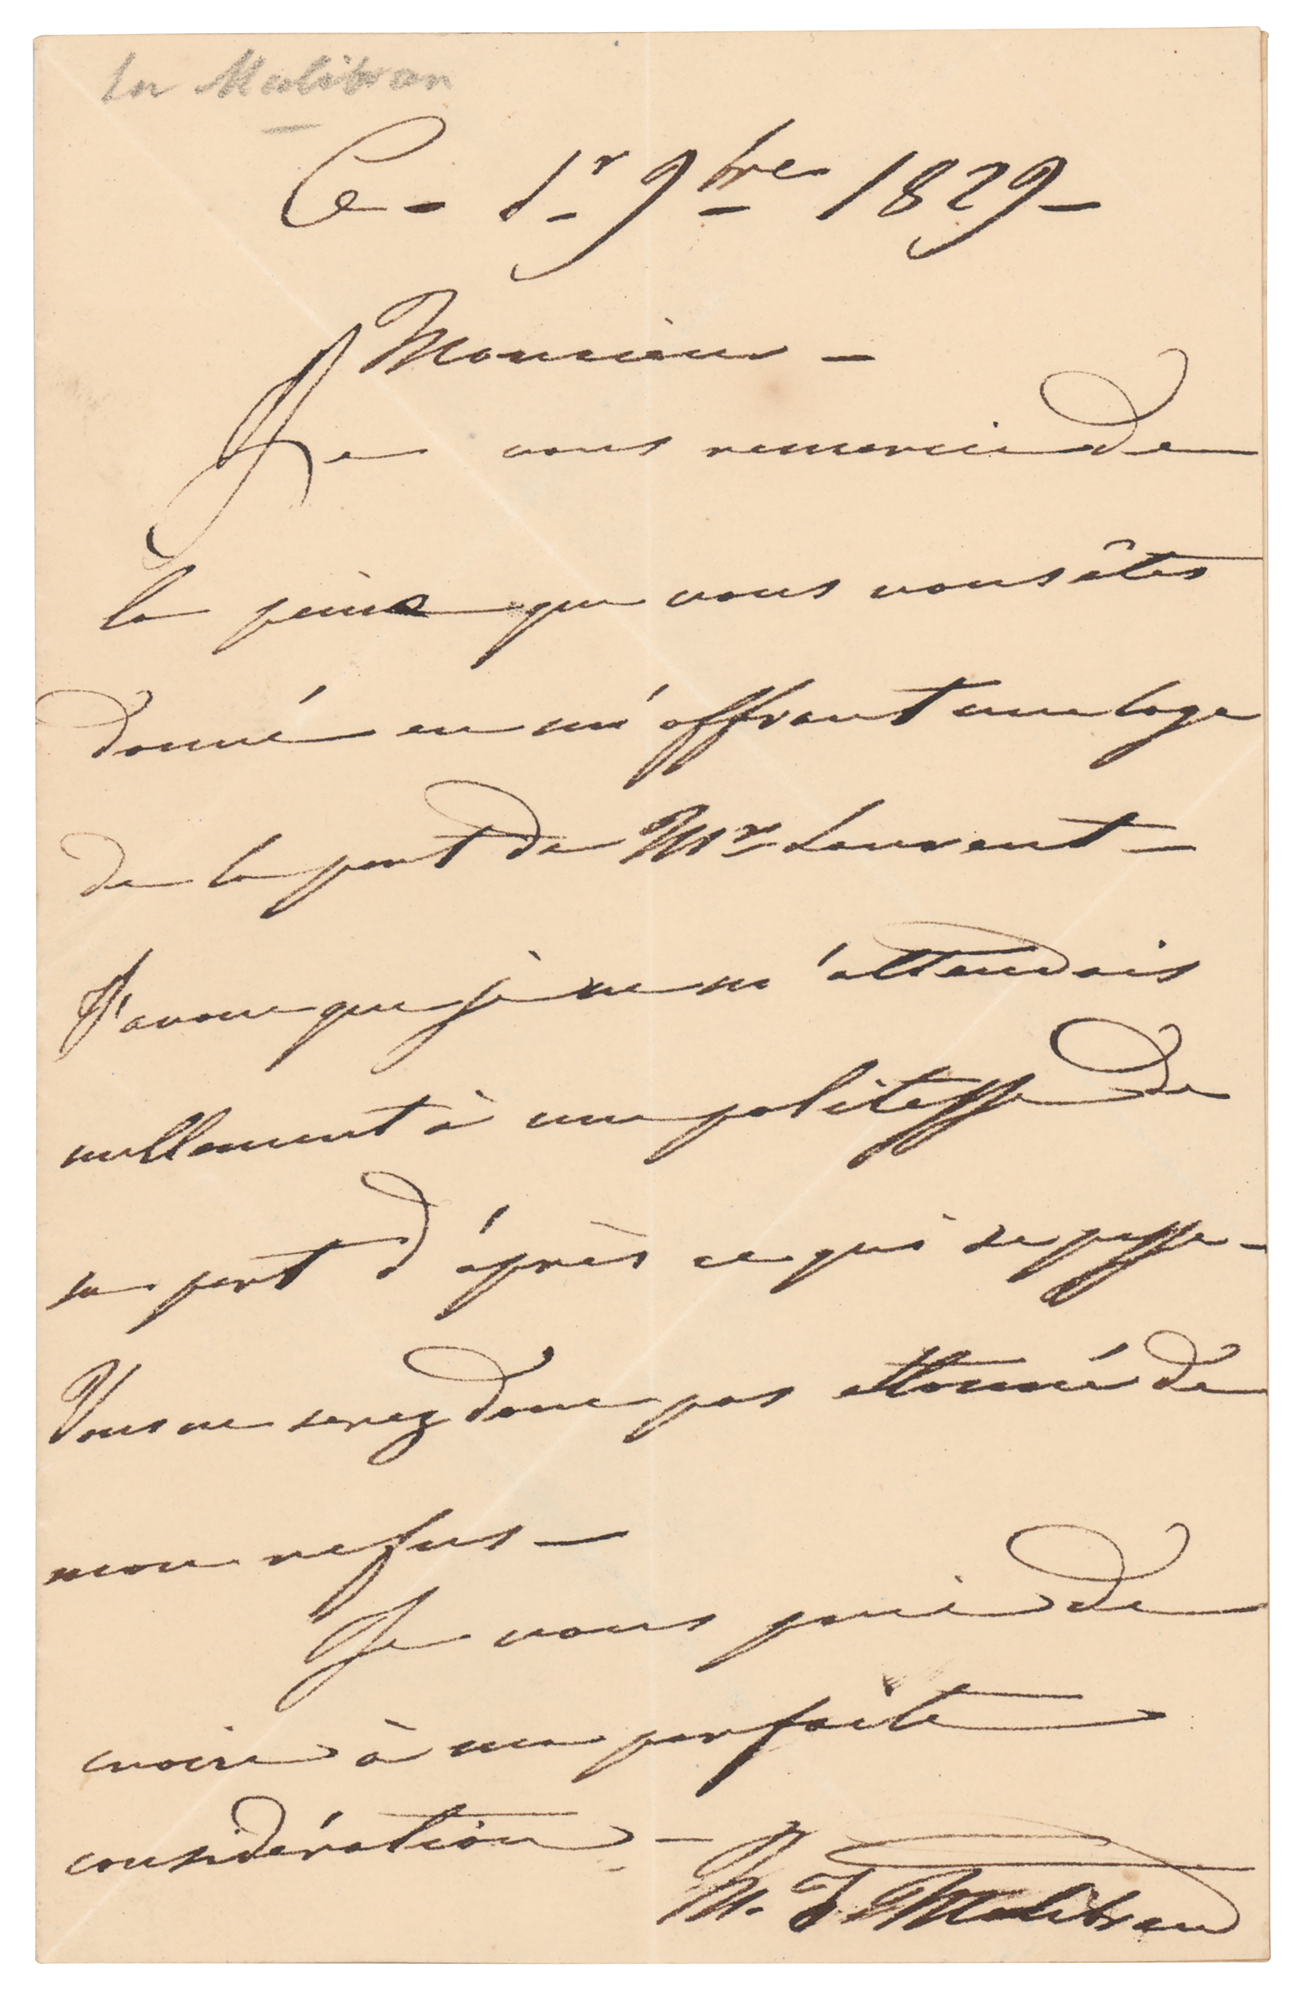 La Malibran
Ce - 1r 9bre 1829 -
Monsieur -
Je vous remercie de
la peine que vous vous êtes
donné en m'offrant une loge
de la part de Mr Laurent -
J'avoue que je ne m'attendais
nullement à une politesse de
sa part d'après ce qui se passe -
Vous ne serez donc pas ettonné de
mon refus -
Je vous prie de
croire à ma parfaite
considération -
M. F. Malibran